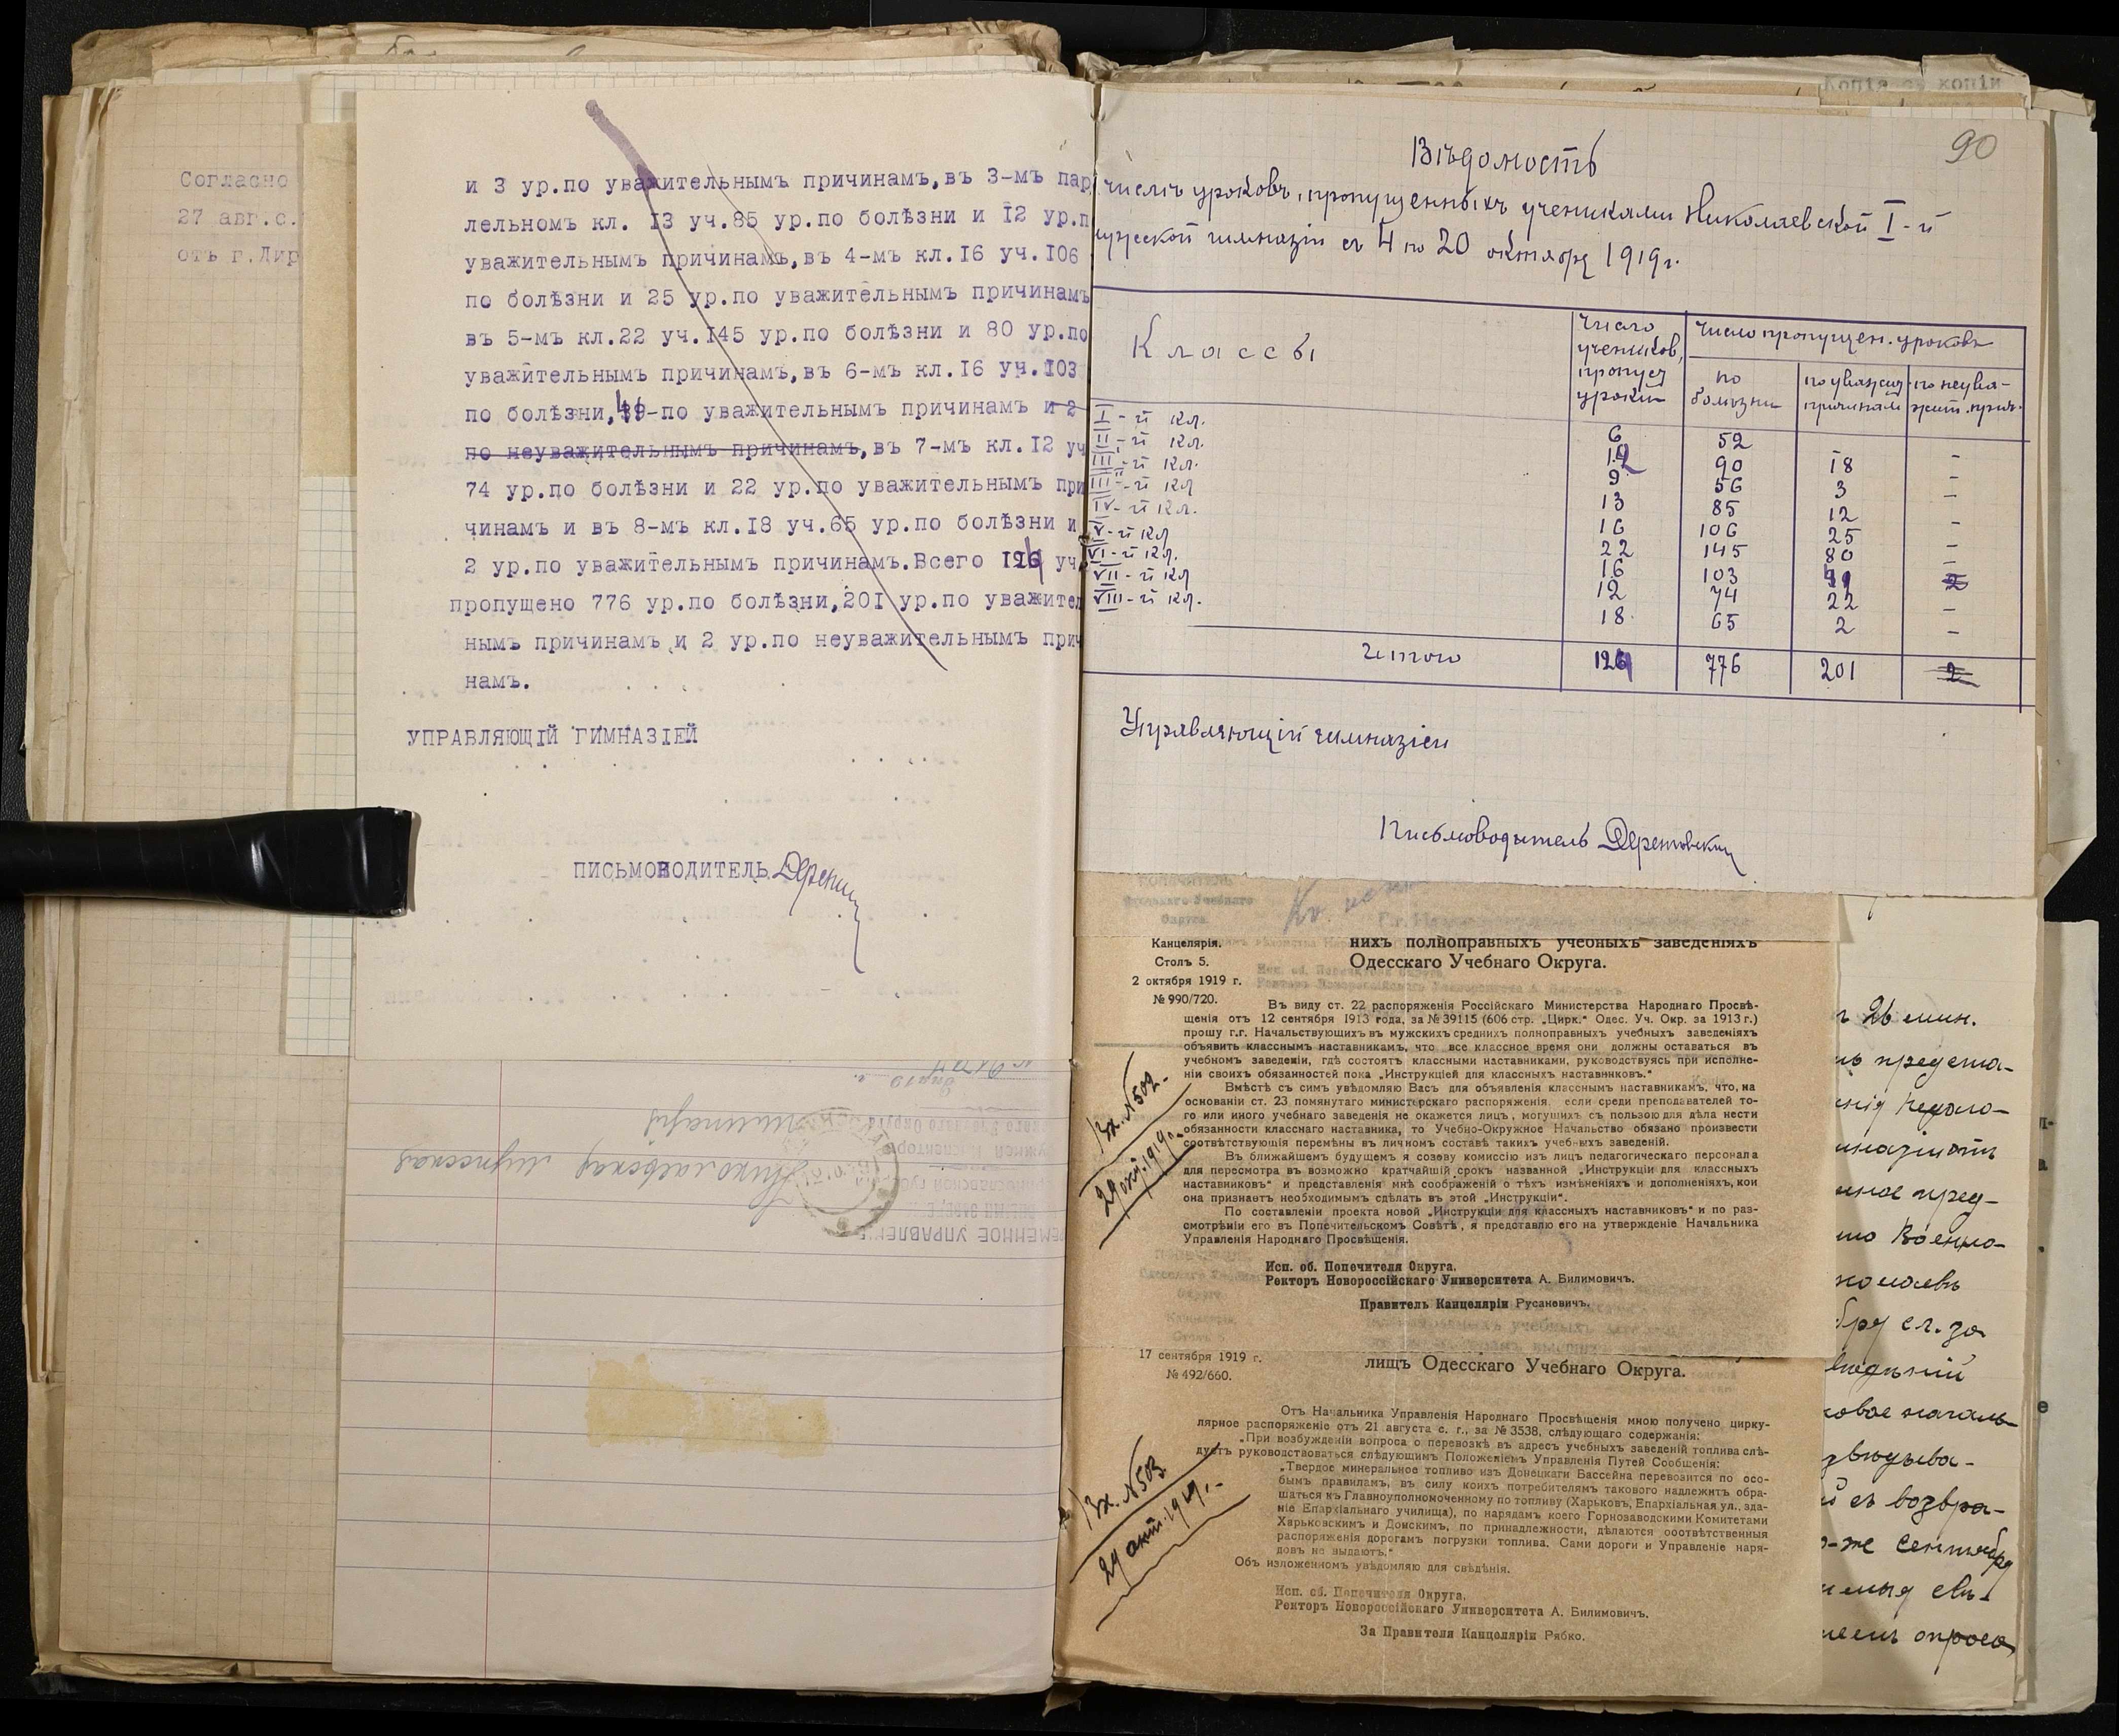 Согласно
27 авг.с.
отъ г.Дир
и 3 ур.по уважительнымъ причинамъ,въ 3-мъ пар
лельномъ кл. I3 уч.85 ур.по болѣзни и I2 ур.п
уважительнымъ причинамъ,въ 4-мъ кл.I6 уч.I06
по болѣзни и 25 ур.по уважительнымъ причинамъ
въ 5-мъ кл.22 уч.I45 ур.по болѣзни и 80 ур.по
уважительнымъ причинамъ,въ 6-мъ кл.I6 уч.I03
по болѣзни, -по уважительнымъ причинамъ и 2
по неуважительнымъ причинамъ,въ 7-мъ кл.I2 уч
74 ур.по болѣзни и 22 ур.по уважительнымъ при
чинамъ и въ 8-мъ кл.I8 уч.65 ур.по болѣзни и
2 ур.по уважительнымъ причинамъ.Всего I24 уч
пропущено 776 ур.по болѣзни,20I ур.по уважител
нымъ причинамъ и 2 ур.по неуважительнымъ прич
намъ.
УПРАВЛЯЮЩІЙ ГИМНАЗІЕЙ
ПИСЬМОВОДИТЕЛЬ
Николаевская мужская
гимназія
Копія съ копіи
90
Вѣдомость
числѣ уроковъ, пропущенныхъ учениками Николаевской I-й
мужской гимназіи съ 4 по 20 октября 1919г.
Классы
число учениковъ, пропуст уроки
Число пропущен. уроковъ
по болѣзни
по уважит причинам
по неува-жит. прич.
I-й кл. 6 52 -
II-й кл. 12 90 18 -
III-й кл. 9 56 3 -
III-й кл 13 85 12 -
IV-й кл. 16 106 25 -
V-й кл 22 145 80 -
VI-й кл. 16 103 2
VII-й кл 12 74 22 -
VIII-й кл. 18 65 2 -
Итого 124 776 201 2
Управляющій гимназіей
Письмоводитель Дерентовский
Канцелярія.
Столъ 5.
2 октября 1919 г.
№ 990/720.
нихъ полноправныхъ учебныхъ заведеніяхъ
Одесскаго Учебнаго Округа.
Въ виду ст. 22 распоряженія Россійскаго Министерства Народнаго Просвѣ-
щенія отъ 12 сентября 1913 года, за № 39115 (606 стр. „Цирк.“ Одес. Уч. Окр. за 1913 г.)
прошу г.г. Начальствующихъ въ мужскихъ среднихъ полноправныхъ учебныхъ заведеніяхъ
объявить класснымъ наставникамъ, что все классное время они должны оставаться въ
учебномъ заведеніи, гдѣ состоятъ классными наставниками, руководствуясь при исполне-
ніи своихъ обязанностей пока „Инструкціей для классныхъ наставниковъ.“
Вмѣстѣ съ симъ увѣдомляю Васъ для объявленія класснымъ наставникамъ, что, на
основаніи ст. 23 помянутаго министерскаго распоряженія, если среди преподавателей то-
го или иного учебнаго заведенія не окажется лицъ, могущихъ съ пользою для дѣла нести
обязанности класснаго наставника, то Учебно-Окружное Начальство обязано произвести
соотвѣтствующія перемѣны въ личномъ составѣ такихъ учебныхъ заведеній.
Въ ближайшемъ будущемъ я созову комиссію изъ лицъ педагогическаго персонала
для пересмотра въ возможно кратчайшій срокъ названной „Инструкціи для классныхъ
наставниковъ“ и представленія мнѣ соображеній о тѣхъ измѣненіяхъ и дополненіяхъ, кои
она признаетъ необходимымъ сдѣлать въ этой „Инструкціи“.
По составленіи проекта новой „Инструкціи для классныхъ наставниковъ“ и по раз-
смотрѣніи его въ Попечительскомъ Совѣтѣ, я представлю его на утвержденіе Начальника
Управленія Народнаго Просвѣщенія.
Исп. об. Попечителя Округа,
Ректоръ Новороссійскаго Университета А. Билимовичъ.
Правитель Канцеляріи Русановичъ.
Вх. №502
29 окт. 1919г.
17 сентября 1919 г.
№ 492/660.
лищъ Одесскаго Учебнаго Округа.
Отъ Начальника Управленія Народнаго Просвѣщенія мною получено цирку-
лярное распоряженіе отъ 21 августа с. г., за № 3538, слѣдующаго содержанія:
„При возбужденіи вопроса о перевозкѣ въ адресъ учебныхъ заведеній топлива слѣ-
дуетъ руководствоваться слѣдующимъ Положеніемъ Управленія Путей Сообщенія:
„Твердое минеральное топливо изъ Донецкаго Бассейна перевозится по осо-
бымъ правиламъ, въ силу коихъ потребителямъ такового надлежитъ обра-
шаться къ Главноуполномоченному по топливу (Харьковъ, Епархіальная ул., зда-
ніе Епархіальнаго училища), по нарядамъ коего Горнозаводскими Комитетами
Харьковскимъ и Донскимъ, по принадлежности, дѣлаются соотвѣтственныя
распоряженія дорогамъ погрузки топлива. Сами дороги и Управленіе наря-
довъ не выдаютъ.“
Объ изложенномъ увѣдомляю для свѣдѣнія.
Исп. об. Попечителя Округа,
Ректоръ Новороссійскаго Университета А. Билимовичъ.
За Правителя Канцеляріи Рябко.
Вх. №503
29 окт. 1919г.
26 мин.
предста-
пред-
Военно-
бря ст. за
съ возвра-
-же сентября